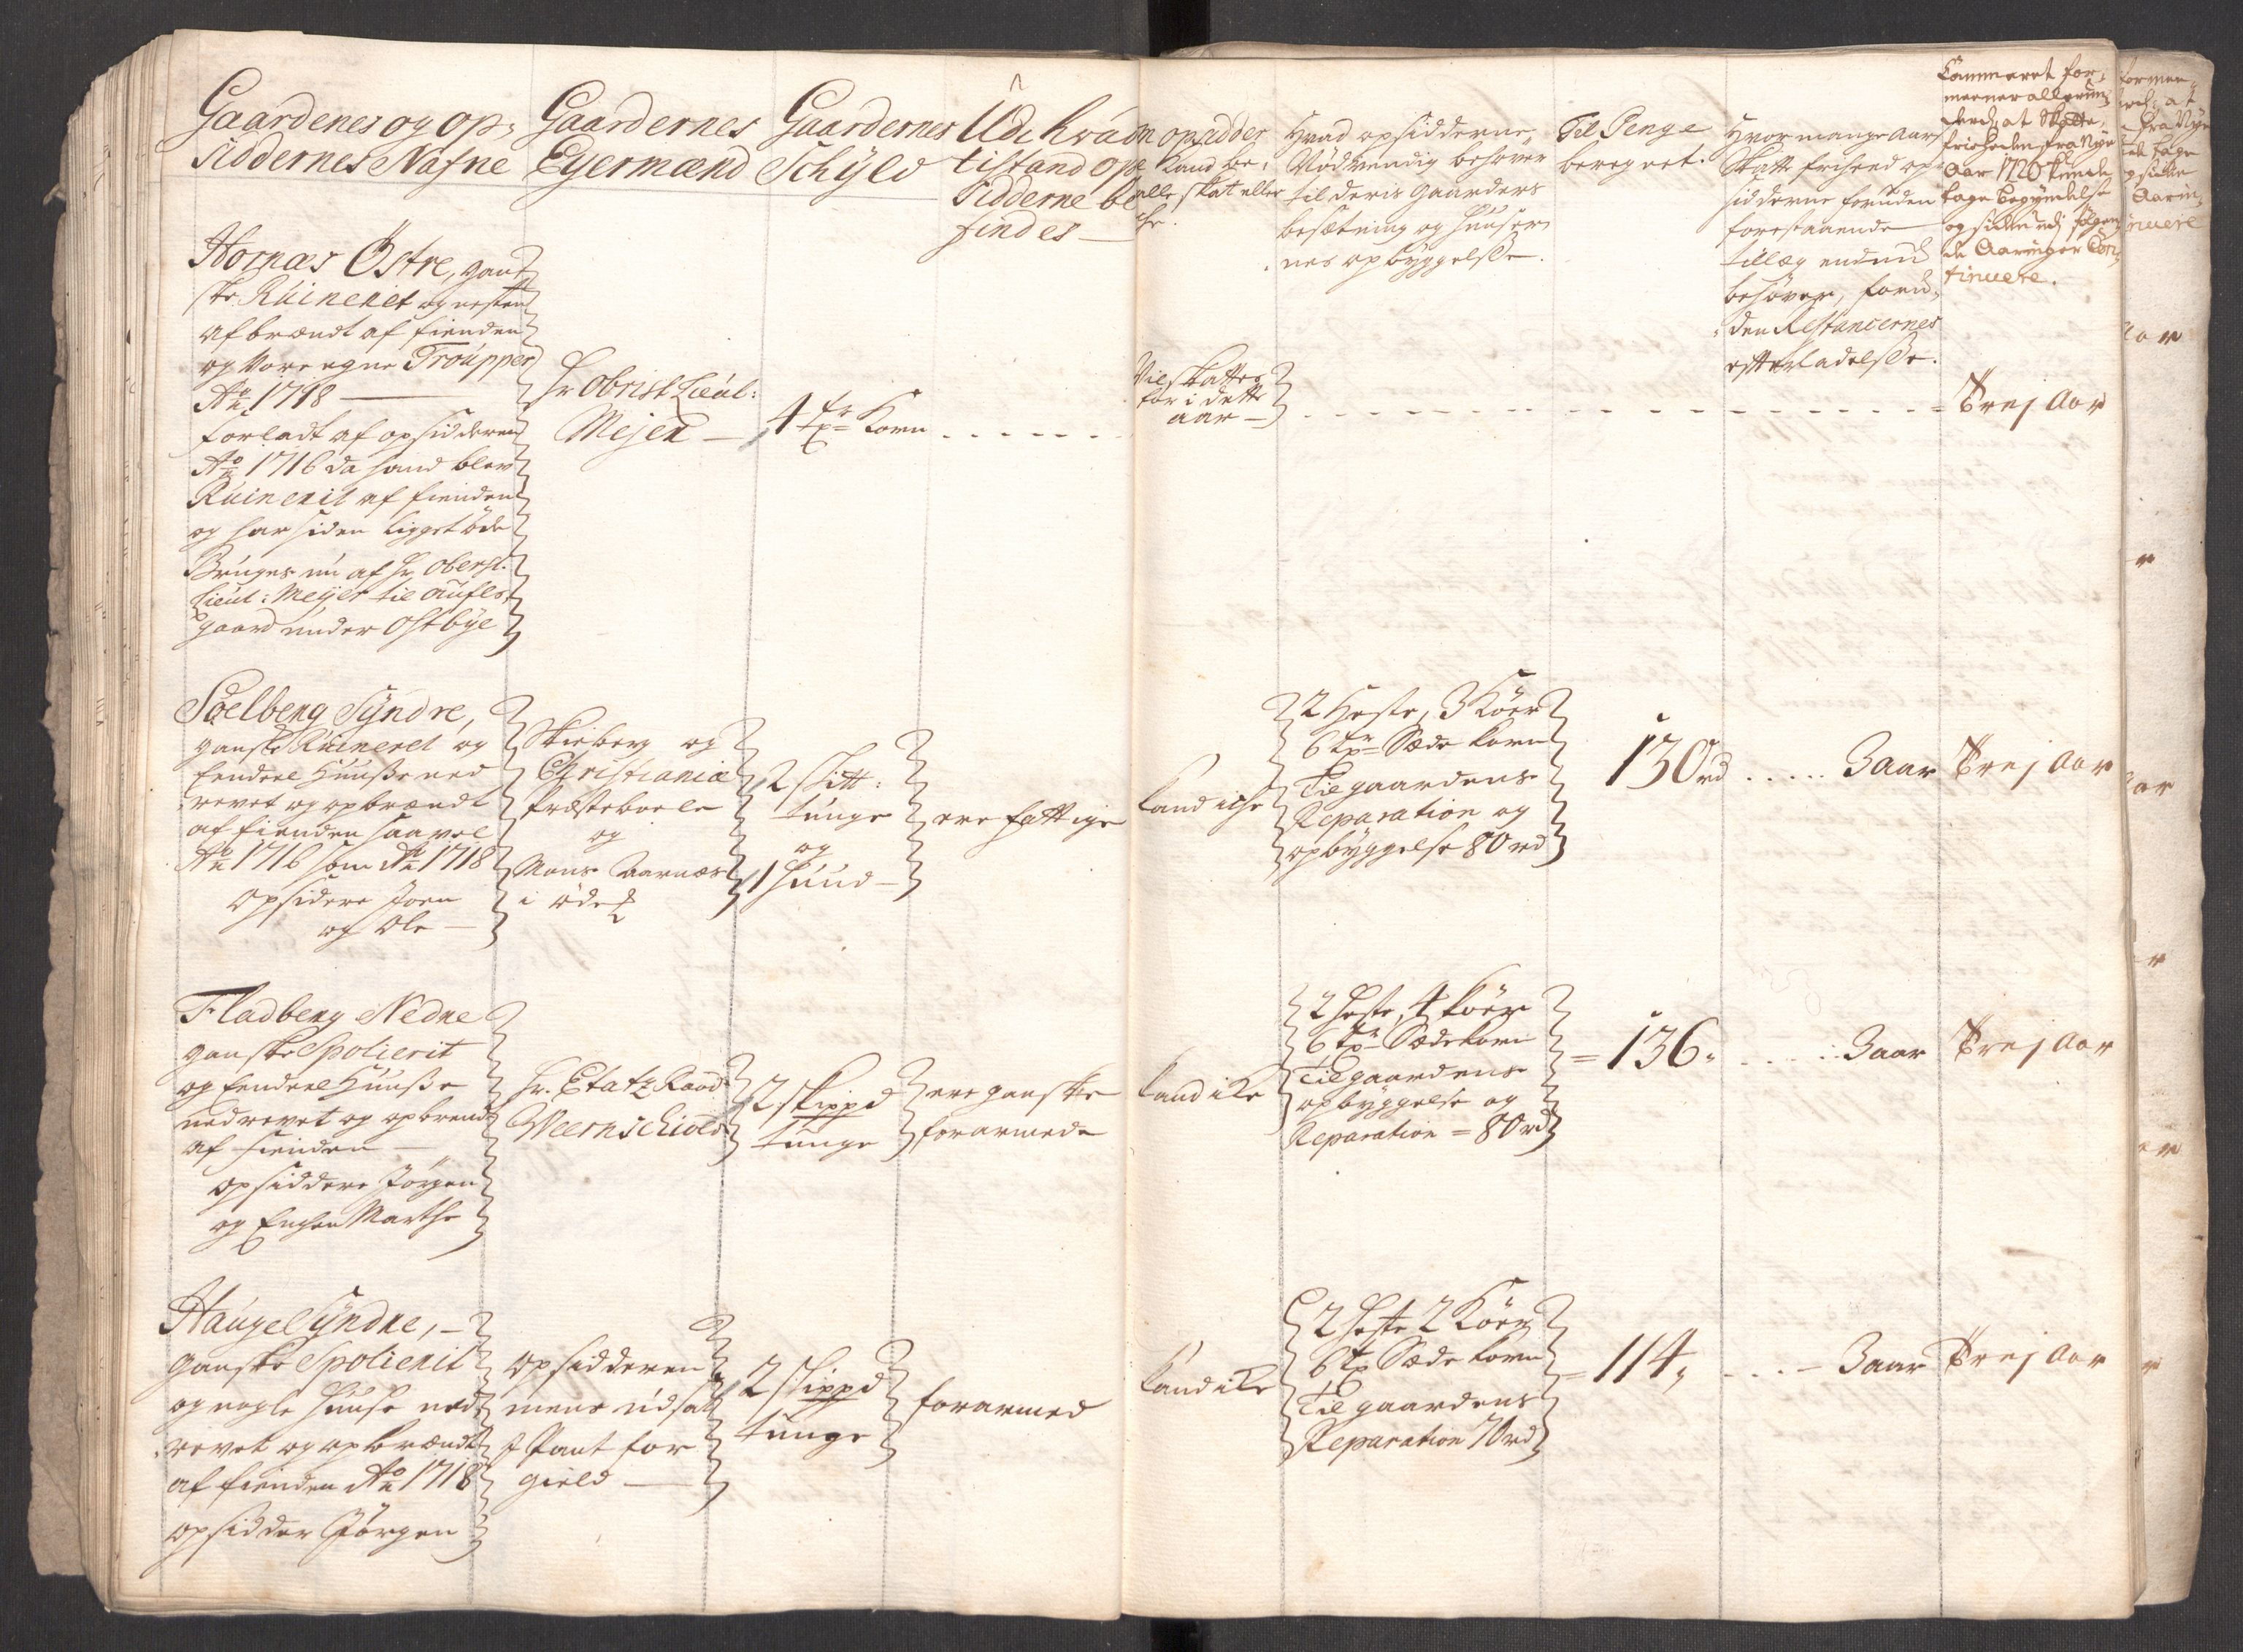 Gaardenes og op-
siddernes Nafne
Gaardernes
Eyermænd
Gaardernes
Schyld
Udi hvad
tilstand ops
sidderne be
findes
opsidder
kand be-
talle skat eller
iche.
Hvad opsidderne
Nødvendig behøver
til deris gaarders
besætning og huuser-
nes opbyggelsse.
Til Penge
beregnet.
Hvor mange aars
Skatte frihed op-
sidderne foruden
forestaaende
tillæg endnu
behøver, foru-
den Restancernes
efterladelsse.
Cammeret for-
meener allerun-
derd: at Skatte
friheden fra Nye
Aar 1720 kunde
tage begyndelse
og siden udj følgen-
de Aaringer Con-
tinuere.
Hornæs Østre, gant-
ske Ruineret og nesten
afbrændt af fienden
og Vore egne Troupper
Ao 1718
forladt af opsidderen
Ao 1716 da hand blev
Ruinerit af fienden
og har siden ligget øde
Bruges nu af Hr Oberst-
Lieut: Meyer til aufls-
gaard under Ostbye
Hr Obrist Lieut:
Mejer
4 tr Korn
Vil skattes
for i dette
aar
Trej Aar
Soelberg Syndre,
ganske Ruineret og
endeel Huusse ned-
revet og opbrændt
af fienden saavel
Ao 1716 som Ao 1718
Opsidere Joen
og Ole
Skieberg og
Christiania
Præsteboele
og
Mons Aarnæs
i øde
2 Skitt:
tunge
og
1 Huud
ere fattige
kand iche
2 Heste, 3 Kiøer
6 tr Sæde korn
Til gaardens
Reparation og
opbyggelse 80 rd
130 rd
3 aar
Trej Aar
Fladberg Nedre
ganske Spolierit
og endeel Huusse
nedrevet og opbrend
af fienden
opsiddere Jørgen
og Enchen Marthe
Hr. Etatz Raad
Weernschiold
2 skippd
tunge
ere ganske
forarmede
kand ike
2 heste, 4 kiøer
6 tr Sædekorn
Til gaardens
opbyggelse og
Reparation = 80 rd
= 136
3 aar
Trej Aar
Hauge Syndre,
ganske Spolierit
og nogle Huuse ned-
revet og opbrændt
af fienden Ao 1718
opsidder Jørgen
opsidderen
mens udsat
j Pant for
gield
2 skippd
tunge
forarmed
kand ike
2 heste 2 Kiøer
6 t Sæde korn
Til gaardens
Reparation 70 rd
= 114
3 aar
Trej Aar